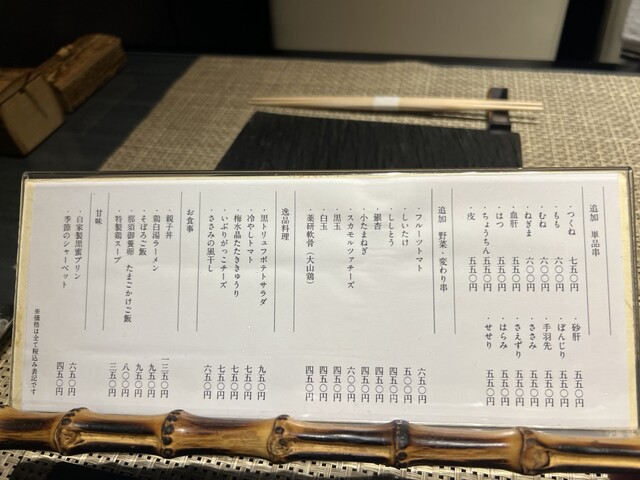 追加 単品串
・つくね 七五〇円 ・砂肝 五五〇円
・もも 六〇〇円 ・ぼんじり 五五〇円
・むね 六〇〇円 ・手羽先 五五〇円
・ねぎま 六〇〇円 ・ささみ 五五〇円
・血肝 五五〇円 ・さえずり 五五〇円
・はつ 五五〇円 ・はらみ 五五〇円
・ちょうちん 五五〇円 ・せせり 五五〇円
・皮 五五〇円
追加 野菜・変わり串
・フルーツトマト 六五〇円
・しいたけ 五〇〇円
・ししとう 四五〇円
・銀杏 四五〇円
・小たまねぎ 四五〇円
・スカモルツァチーズ 六〇〇円
・黒玉 四五〇円
・白玉 四五〇円
・薬研軟骨(大山鶏) 四五〇円
逸品料理
・黒トリュフポテトサラダ 九五〇円
・冷やしトマト 七五〇円
・梅水晶たたききゅうり 七五〇円
・いぶりがっこチーズ 七五〇円
・ささみの風干し 六五〇円
お食事
・親子丼 一三五〇円
・鶏白湯ラーメン 九五〇円
・そぼろご飯 九五〇円
・那須御養卵 たまごかけご飯 八〇〇円
・特製鶏スープ 三五〇円
甘味
・自家製黒蜜プリン 六五〇円
・季節のシャーベット 四五〇円
※価格は全て税込み表記です